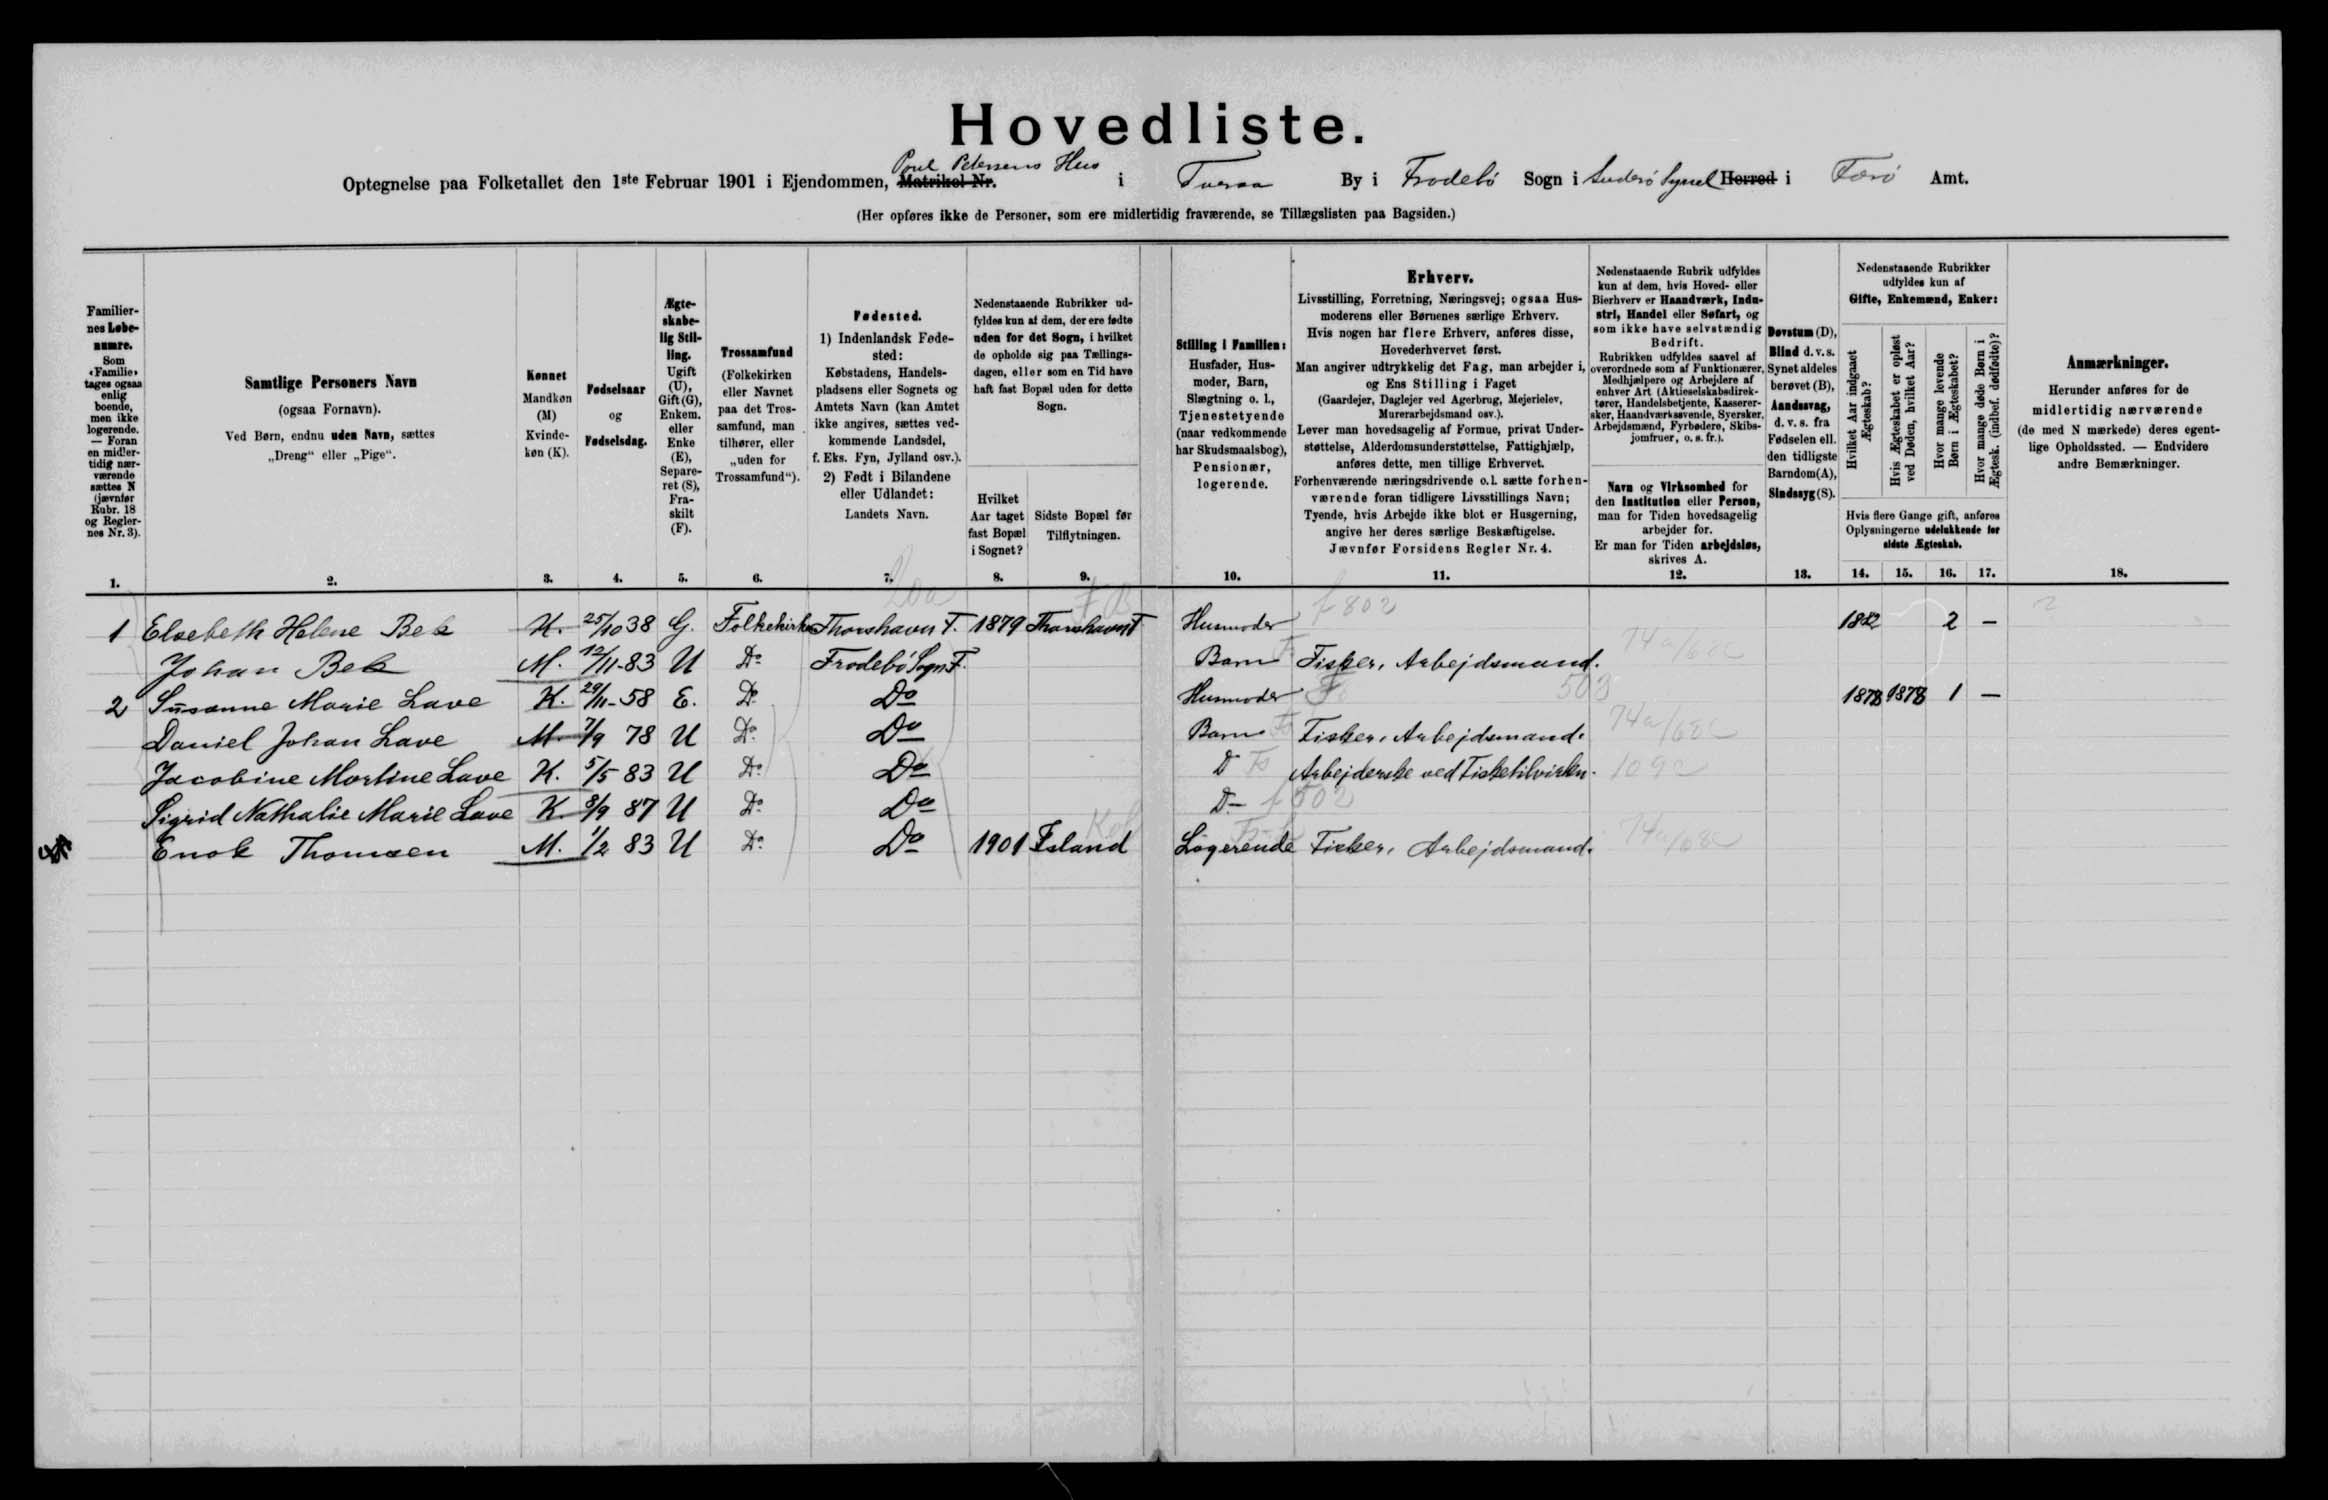 Hovedliste.
Poul Petersens Hus
Optegnelse paa Folketallet den 1ste Februar 1901 i Ejendommen, Matrikel-Nr. i Tveraa By i Frodebö Sogn i Suderö Syssel Herred i Færö Amt.
(Her opføres ikke de Personer, som ere midlertidig fraværende, se Tillægslisten paa Bagsiden.)
Familier-
nes Løbe-
numre.
Som
«Familie»
tages ogsaa
enlig
boende,
men ikke
logerende.
— Foran
en midler-
tidig nær-
værende
sættes N
(jævnfør
Rubr. 18
og Regler-
nes Nr. 3).
1.
Samtlige Personers Navn
(ogsaa Fornavn).
Ved Børn, endnu uden Navn, sættes
„Dreng“ eller „Pige“.
2.
Kønnet
Mandkøn
(M)
Kvinde-
køn (K).
3.
Fødselsaar
og
Fødselsdag.
4.
Ægte-
skabe-
lig Stil-
ling.
Ugift
(U),
Gift (G),
Enkem.
eller
Enke
(E),
Separe-
ret (S),
Fra-
skilt
(F).
5.
Trossamfund
(Folkekirken
eller Navnet
paa det Tros-
samfund, man
tilhører, eller
„uden for
Trossamfund“).
6.
Fødested.
1) Indenlandsk Føde-
sted:
Købstadens, Handels-
pladsens eller Sognets og
Amtets Navn (kan Amtet
ikke angives, sættes ved-
kommende Landsdel,
f. Eks. Fyn, Jylland osv.).
2) Født i Bilandene
eller Udlandet:
Landets Navn.
7.
Nedenstaaende Rubrikker ud-
fyldes kun af dem, der ere fødte
uden for det Sogn, i hvilket
de opholde sig paa Tællings-
dagen, eller som en Tid have
haft fast Bopæl uden for dette
Sogn.
Hvilket
Aar taget
fast Bopæl
i Sognet?
8.
Sidste Bopæl før
Tilflytningen.
9.
Stilling i Familien:
Husfader, Hus-
moder, Barn,
Slægtning o. l.,
Tjenestetyende
(naar vedkommende
har Skudsmaalsbog),
Pensionær,
logerende.
10.
Erhverv.
Livsstilling, Forretning, Næringsvej; ogsaa Hus-
moderens eller Børnenes særlige Erhverv.
Hvis nogen har flere Erhverv, anføres disse,
Hovederhvervet først.
Man angiver udtrykkelig det Fag, man arbejder i,
og Ens Stilling i Faget
(Gaardejer, Daglejer ved Agerbrug, Mejerielev,
Murerarbejdsmand osv.).
Lever man hovedsagelig af Formue, privat Under-
støttelse, Alderdomsunderstøttelse, Fattighjælp,
anføres dette, men tillige Erhvervet.
Forhenværende næringsdrivende o. l. sætte forhen-
værende foran tidligere Livsstillings Navn;
Tyende, hvis Arbejde ikke blot er Husgerning,
angive her deres særlige Beskæftigelse.
Jævnfør Forsidens Regler Nr. 4.
11.
Nedenstaaende Rubrik udfyldes
kun af dem, hvis Hoved- eller
Bierhverv er Haandværk, Indu-
stri, Handel eller Søfart, og
som ikke have selvstændig
Bedrift.
Rubrikken udfyldes saavel af
overordnede som af Funktionærer,
Medhjælpere og Arbejdere af
enhver Art (Aktieselskabsdirek-
tører, Handelsbetjente, Kasserer-
sker, Haandværkssvende, Syersker,
Arbejdsmænd, Fyrbødere, Skibs-
jomfruer, o. s. fr.).
Navn og Virksomhed for
den Institution eller Person,
man for Tiden hovedsagelig
arbejder for.
Er man for Tiden arbejdsløs,
skrives A.
12.
Døvstum (D),
Blind d. v. s.
Synet aldeles
berøvet (B),
Aandssvag,
d. v. s. fra
Fødselen ell.
den tidligste
Barndom (A),
Sindssyg (S).
13.
Nedenstaaende Rubrikker
udfyldes kun af
Gifte, Enkemænd, Enker:
Hvilket Aar indgaaet
Ægteskab?
Hvis Ægteskabet er opløst
ved Døden, hvilket Aar?
Hvor mange levende
Børn i Ægteskabet?
Hvor mange døde Børn i
Ægtesk. (indbef. dødfødte)?
Hvis flere Gange gift, anføres
Oplysningerne udelukkende for
sidste Ægteskab.
14. 15. 16. 17.
Anmærkninger.
Herunder anføres for de
midlertidig nærværende
(de med N mærkede) deres egent-
lige Opholdssted. — Endvidere
andre Bemærkninger.
18.
f 802
1 Elsebeth Helene Bek K. 25/10 38 G. Folkekirken Thorshavn F. 1879 Thorshavn F Husmoder 2 —
74a/68c
Johan Bek M. 12/11-83 U Do Frodebö Sogn F. Barn Fisker, Arbejdsmand.
2 Susanne Marie Lave K. 29/11-58 E. Do Do Husmoder 1878 1878 1 —
74a/68c
Daniel Johan Lave M. 7/9 78 U Do Do Barn Fisker, Arbejdsmand.
Jacobine Martine Lave K. 5/5 83 U Do Do D Arbejderske ved Fisketilvirkn. 109c
Sigrid Nathalie Marie Lave K 8/9 87 U Do Do D- f 802
Enok Thomsen M. 1/2 83 U Do Do 1901 Island Logerende Fisker, Arbejdsmand. 74a/68c